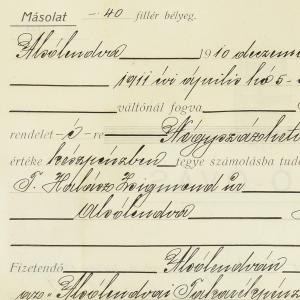 Másolat – 40 fillér bélyeg.
Alsólendva 1910 deczem
1911 évi április hó 5-
váltónál fogva
rendelet-é-re Négyszázhet
értéke készpénzben tegye számolásba tud
T. Halász Zsigmond úr
Alsólendva
Fizetendő Alsólendván
az Alsólendvai Takarékpénz